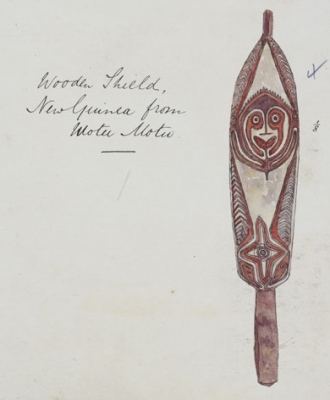 Wooden Shield,
New Guinea from
Motu Motu